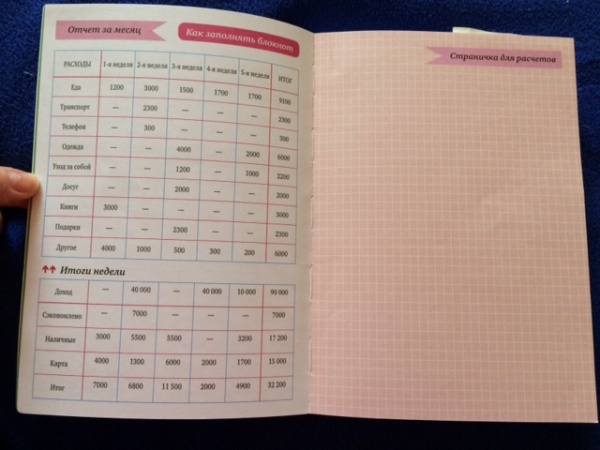 Отчет за месяц
Как заполнять блокнот
РАСХОДЫ 1-я неделя 2-я неделя 3-я неделя 4-я неделя 5-я неделя ИТОГ
Еда 1200 3000 1500 1700 1700 9100
Транспорт — 2300 — — — 2300
Телефон — 300 — — — 300
Одежда — — 4000 — 2000 6000
Уход за собой — — 1200 — 1000 2200
Досуг — — 2000 — — 2000
Книги 3000 — — — — 3000
Подарки — — 2300 — — 2300
Другое 4000 1000 500 300 200 6000
Итоги недели
Доход — 40 000 — 40 000 10 000 90 000
Сэкономлено — 7000 — — — 7000
Наличные 3000 5500 5500 — 3200 17 200
Карта 4000 1300 6000 2000 1700 15 000
Итог 7000 6800 11 500 2000 4900 32 200
Страничка для расчетов